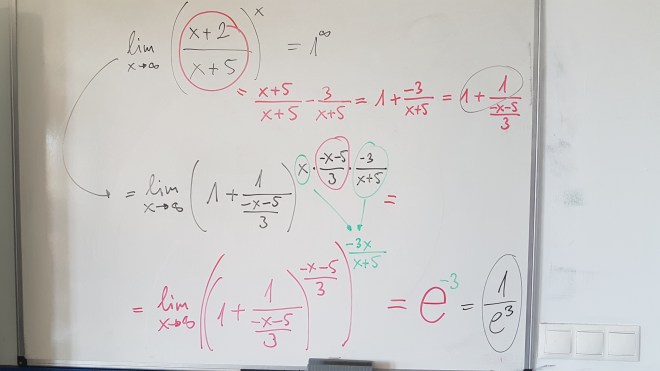 lim x→∞ ((x+2)/(x+5))^x = 1^∞
= (x+5)/(x+5) - 3/(x+5) = 1 + (-3)/(x+5) = 1 + 1/((-x-5)/3)
= lim x→∞ (1 + 1/((-x-5)/3))^(x · (-x-5)/3 · (-3)/(x+5)) =
= lim x→∞ ((1 + 1/((-x-5)/3))^((-x-5)/3))^((-3x)/(x+5)) = e^(-3) = 1/e^3